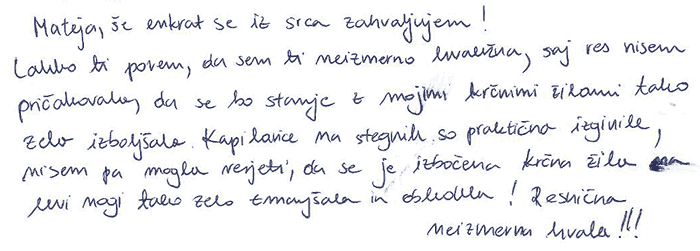 Mateja, še enkrat se iz srca zahvaljujem!
Lahko ti povem, da sem ti neizmerno hvaležna, saj res nisem
pričakovala, da se bo stanje z mojimi krčnimi žilami tako
zelo izboljšalo. Kapilarice na stegnih so praktično izginile,
nisem pa mogla verjeti, da se je izbočena krčna žila na
levi nogi tako zelo zmanjšala in obledela! Resnična
neizmerna hvala!!!